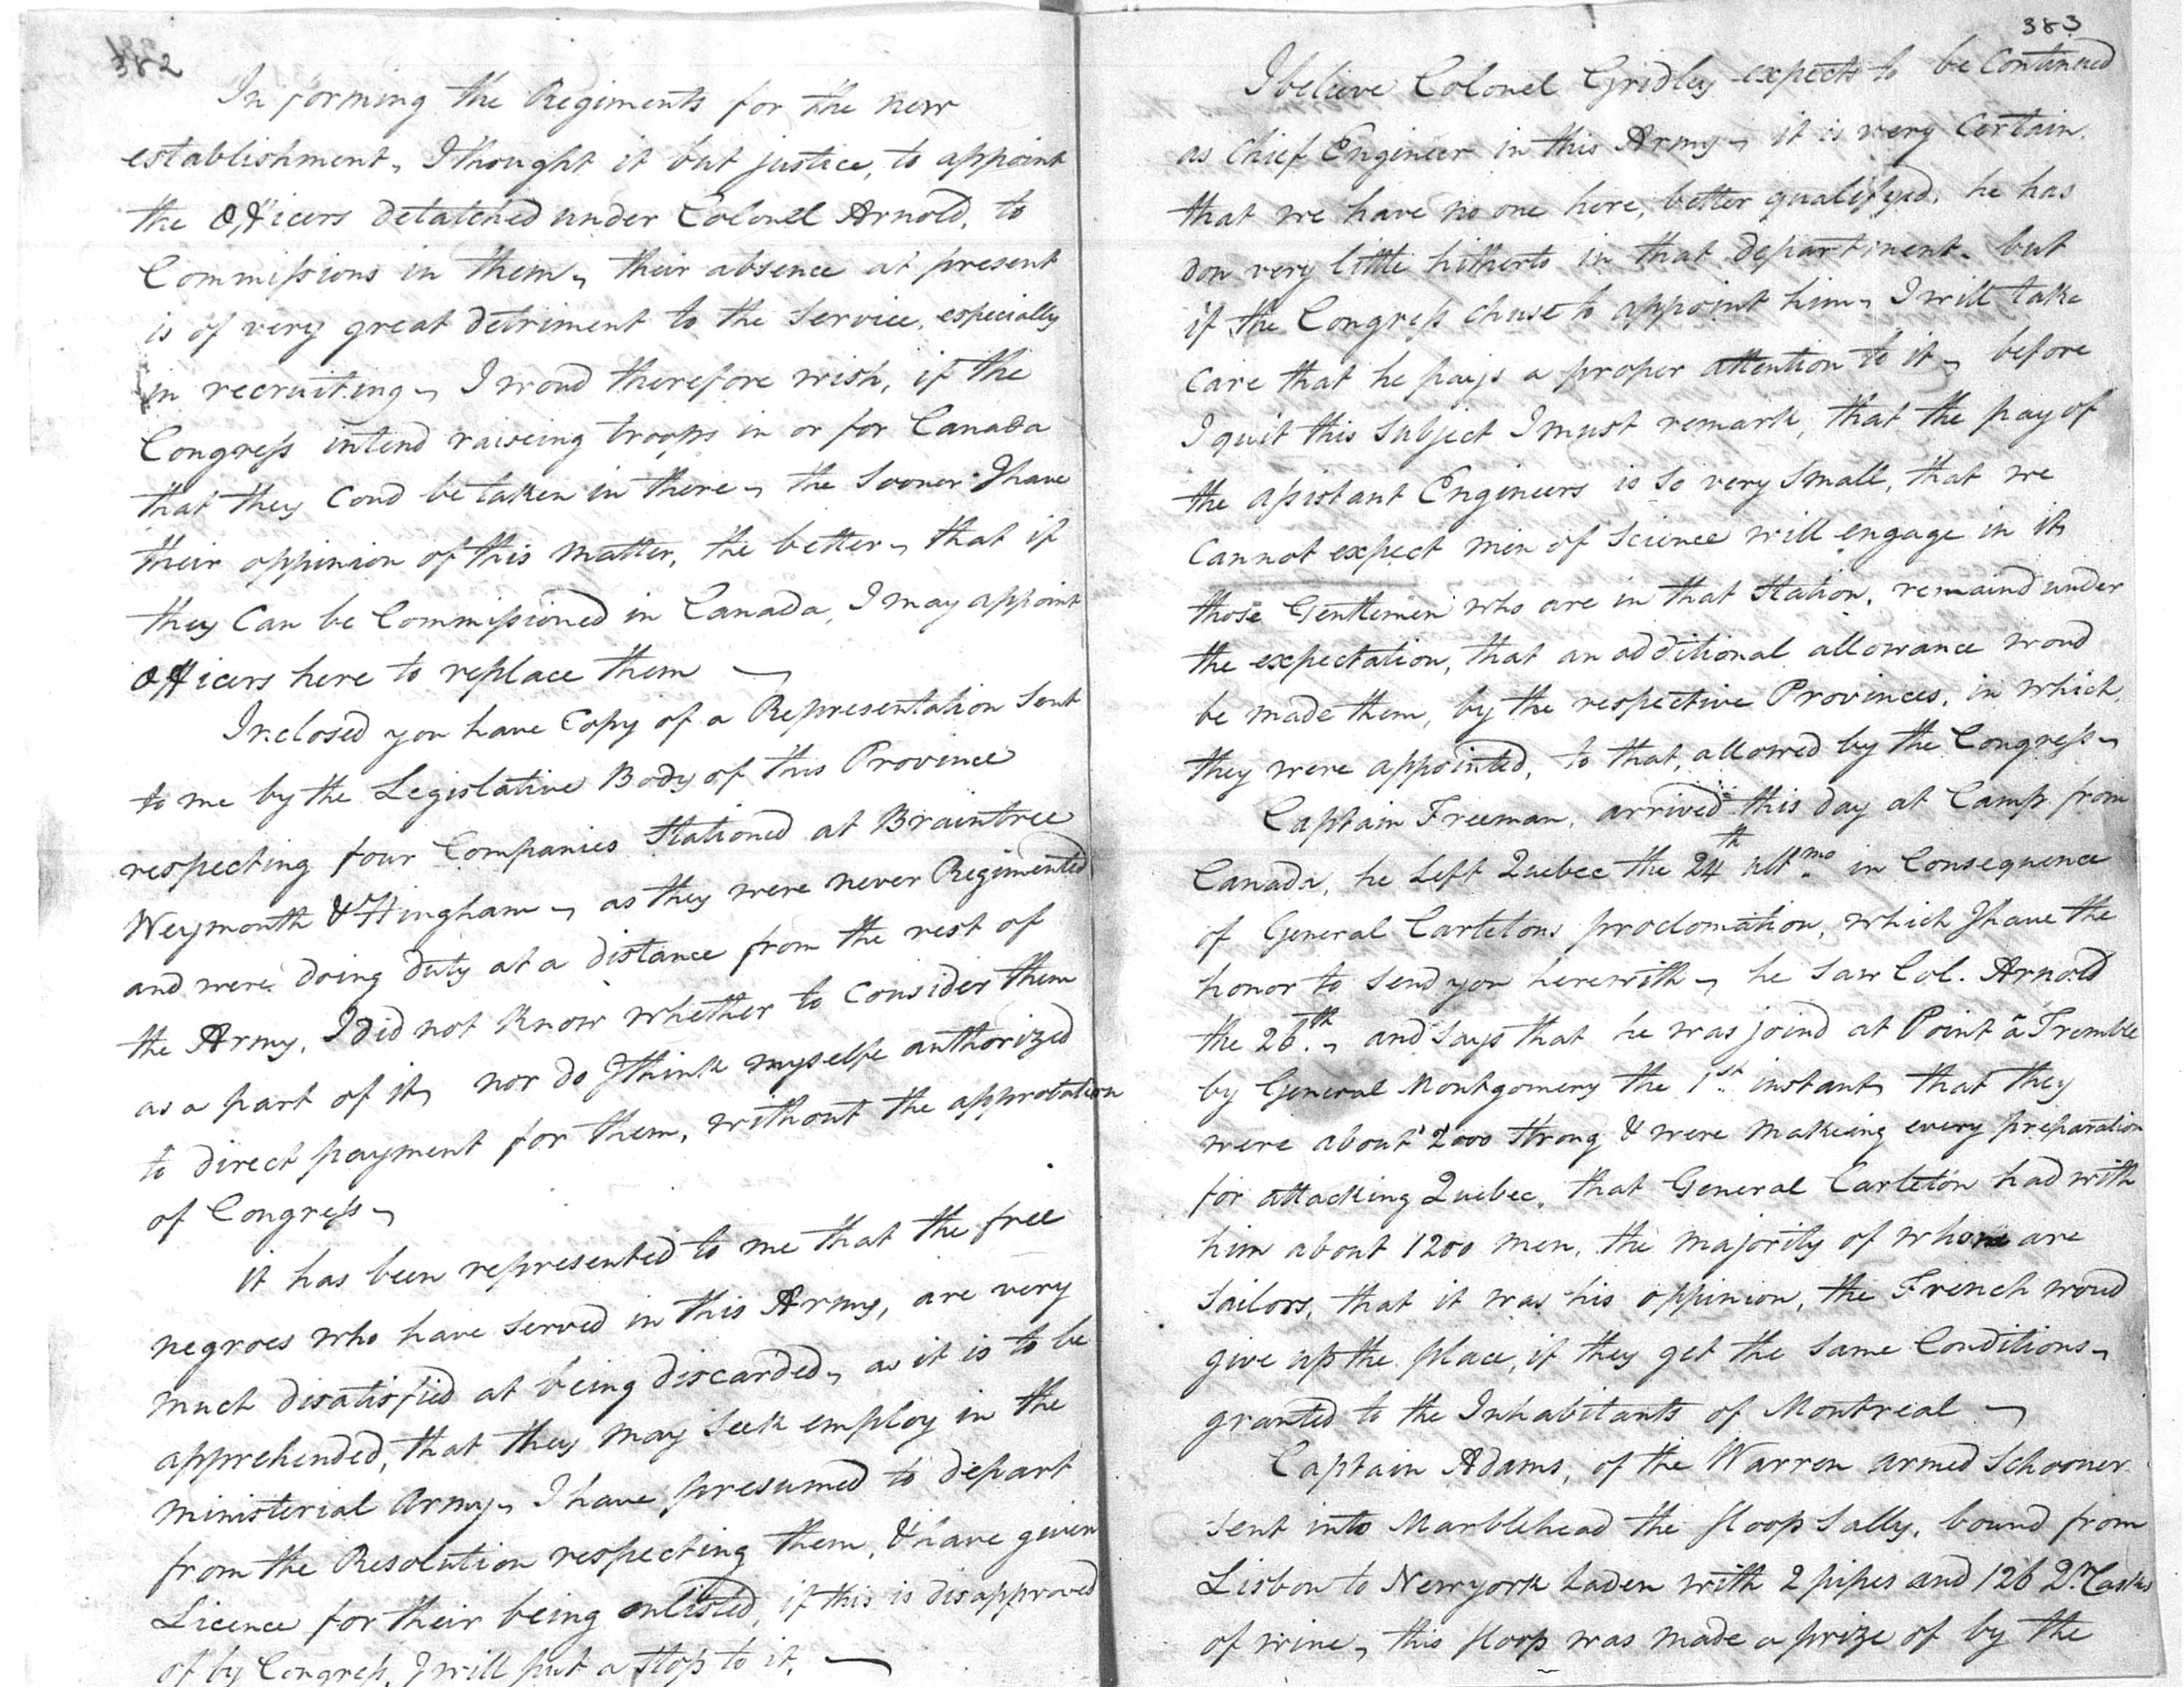 382
In forming the Regiments for the new
establishment, I thought it but justice, to appoint
the Officers detatched under Colonel Arnold, to
Commissions in them, their absence at present
is of very great detriment to the Service, especially
in recruiting, I woud therefore wish, if the
Congress intend raiseing troops in or for Canada
that they Coud be taken in there, the Sooner I have
their oppinion of this Matter, the better, that if
they Can be Commissioned in Canada, I may appoint
Officers here to replace them —
Inclosed you have Copy of a Representation Sent
to me by the Legislative Body of this Province
respecting four Companies Stationed at Braintree
Weymouth & Hingham, as they were never Regimented
and were doing duty at a distance from the rest of
the Army, I did not know whether to Consider them
as a part of it, nor do I think myselfe authorized
to direct payment for them, without the approbation
of Congress,
it has been represented to me that the free
negroes who have Served in this Army, are very
much disatisfied at being discarded, as it is to be
apprehended, that they may Seek employ in the
ministerial Army, I have presumed to depart
from the Resolution respecting them, & have given
Licence for their being enlisted, if this is disapproved
of by Congress, I will put a Stop to it. —
383
I believe Colonel Gridley expects to be Continued
as Chief Engineer in this Army, it is very Certain
that we have no one here, better qualifyed, he has
don very little hitherto in that department, but
if the Congress Chuse to appoint him, I will take
Care that he pays a proper attention to it, before
I quit this Subject I must remark, that the pay of
the assistant Engineers is So very Small, that we
Cannot expect men of Science will engage in it,
those Gentlemen who are in that Station, remaind under
the expectation, that an additional allowance woud
be made them, by the respective Provinces, in which
they were appointed, to that, allowed by the Congress,
Captain Freeman, arrived this day at Camp from
Canada, he Left Quebec the 24th ultmo. in Consequence
of General Carletons proclomation, which I have the
honor to Send you herewith, he Saw Col. Arnold
the 26th., and Says that he was joind at Point a Tremble
by General Montgomery the 1st. instant, that they
were about 2000 Strong & were makeing every preparation
for attacking Quebec, that General Carleton had with
him about 1200 men, the majority of whom are
Sailors, that it was his oppinion, the French woud
give up the place, if they get the Same Conditions,
granted to the Inhabitants of Montreal —
Captain Adams, of the Warren armed Schooner
Sent into Marblehead the Sloop Sally, bound from
Lisbon to Newyork Laden with 2 pipes and 126 Qr. Casks
of wine, this Sloop was made a prize of by the